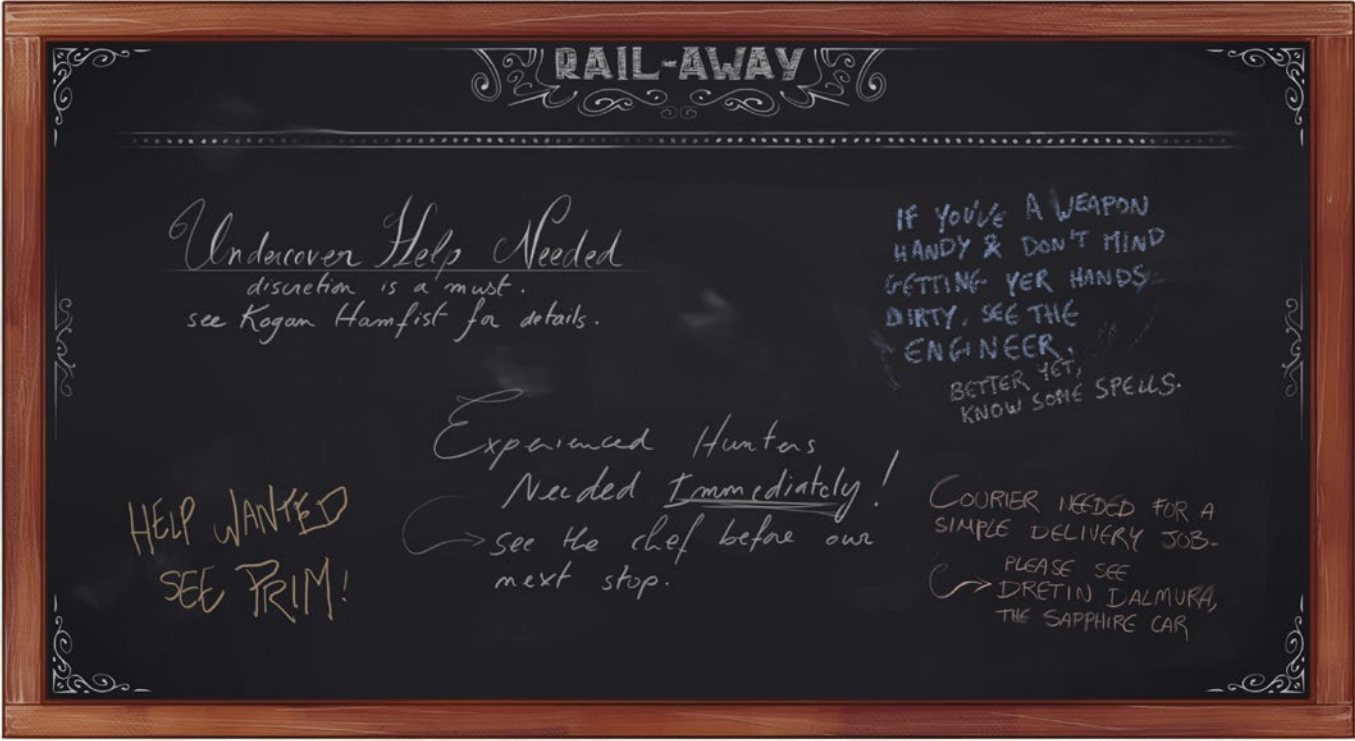 RAIL-AWAY
Undercover Help Needed
discretion is a must.
see Kogan Hamfist for details.
IF YOU'VE A WEAPON
HANDY & DON'T MIND
GETTING YER HANDS
DIRTY, SEE THE
ENGINEER.
BETTER YET,
KNOW SOME SPELLS.
Experienced Hunters
Needed Immediately!
see the chef before our
next stop.
HELP WANTED
SEE PRIM!
COURIER NEEDED FOR A
SIMPLE DELIVERY JOB.
PLEASE SEE
DRETIN DALMURA,
THE SAPPHIRE CAR